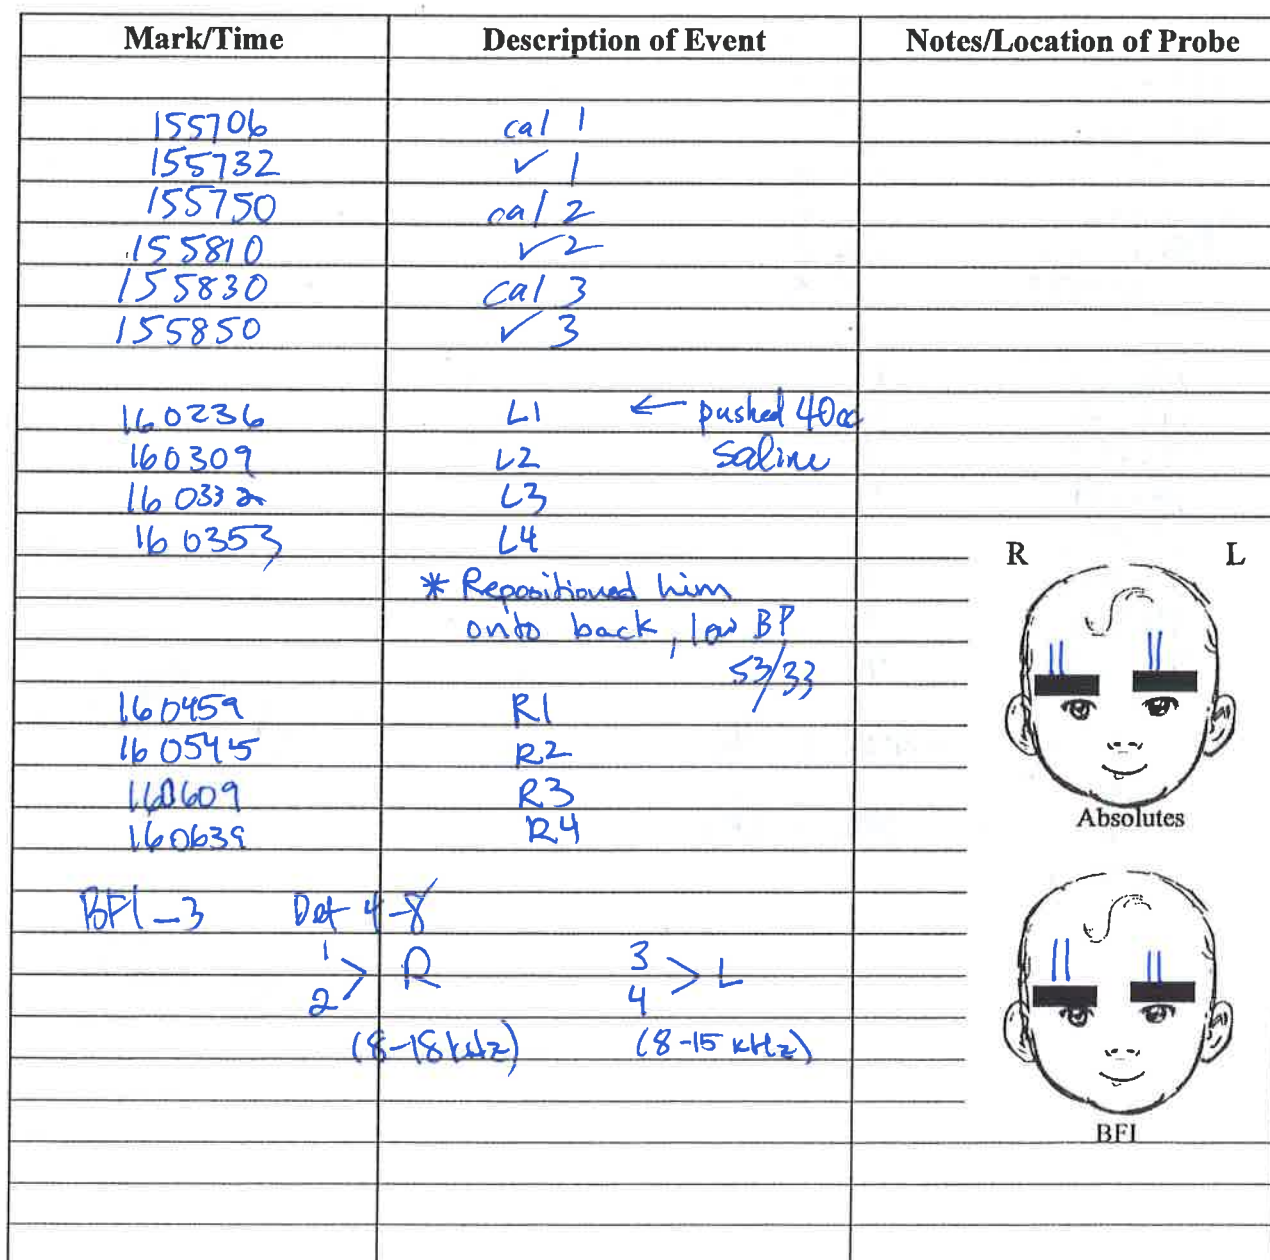 Mark/Time Description of Event Notes/Location of Probe
155706 cal 1
155732 ✓ 1
155750 cal 2
155810 ✓ 2
155830 cal 3
155850 ✓ 3
160236 L1 ← pushed 40cc
160309 L2 saline
160332 L3
160353 L4
R L
* Repositioned him
onto back, low BP
53/33
160459 R1
160545 R2
160609 R3
160639 R4
Absolutes
BFI_3 Det 4-8
1 2 > R 3 4 > L
(8-18 kHz) (8-15 kHz)
BFI